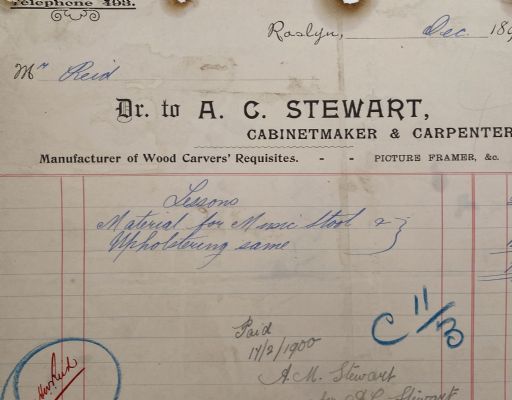 Telephone 493.
Roslyn, Dec. 189
Mr Reid
Dr. to A. C. STEWART,
CABINETMAKER & CARPENTER
Manufacturer of Wood Carvers' Requisites. - - PICTURE FRAMER, &c.
Lessons
Material for Music Stool &
Upholstering same
C 11/
Paid
17/2/1900
A. M. Stewart
for A C Stewart
Reid